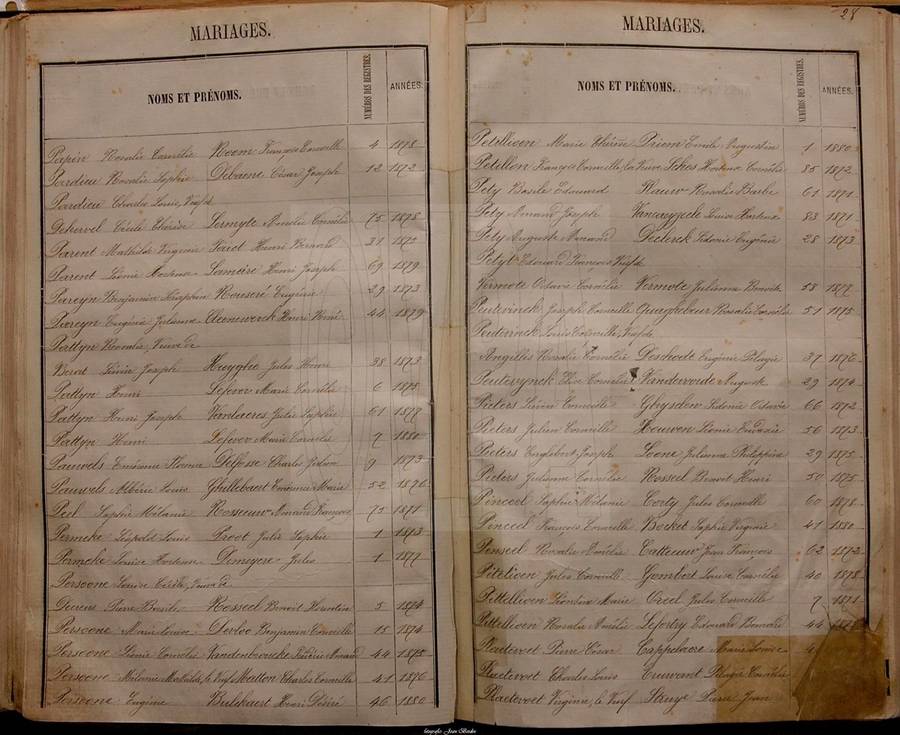 MARIAGES.
NOMS ET PRÉNOMS.
NUMÉROS DES REGISTRES.
ANNÉES.
Papin Rosalie Cornélie Room François Corneille 4 1878
Pardieu Rosalie Sophie Debaene César Joseph 12 1872
Pardieu Charles Louis, Veuf de
Dehervel Cécile Thérèse Lermyte Amélie Cornélie 75 1878
Parent Mathilde Virginie Pariet Henri Bernard 31 1872
Parent Léonie Hortense Lamoire Henri Joseph 69 1879
Pareyn Benjamin Séraphin Rouseré Eugénie 29 1873
Pareyn Eugénie Julienne Henri Rémi 44 1879
Pattyn Rosalie, Veuve de
Joseph Huyghe Jules Henri 38 1873
Pattyn Henri Lefever Marie Cornélie 6 1878
Pattyn Henri Joseph Vandaeres Julie Sophie 61 1879
Pattyn Henri Lefever Marie Cornélie 7 1880
Pauwels Emérence Delfosse Charles 9 1873
Pauwels Albéric Louis Ghillebaert Emérence Marie 52 1876
Peel Sophie Mélanie Rosseeuw Amand François 73 1871
Permeke Léopold Louis Proot Julie Sophie 1 1873
Permeke Louise Hortense Demeyne Jules 1 1877
Persoone Louise Cécile, Veuve de
Pierre Basile Rosseel Benoit Florentin 5 1874
Persoone Marie Louise Devloo Benjamin Corneille 15 1874
Persoone Léonie Cornélie Vandenbroucke Frédéric Amand 44 1875
Persoone Mélanie Mathilde, le Veuf Matton Charles Corneille 41 1876
Persoone Eugénie Bulckaert Henri Désiré 46 1880
28
MARIAGES.
NOMS ET PRÉNOMS.
NUMÉROS DES REGISTRES.
ANNÉES.
Petillioen Marie Thérèse Priem Emile Augustin 1 1880
Petillon François Corneille, la Veuve Hortense Cornélie 85 1872
Pety Basile Edouard Rosalie Barbe 61 1871
Pety Amand Joseph Louise Hortense 83 1871
Pety Auguste Amand Declerck Sidonie Eugénie 28 1873
Petyt Edouard François, Veuf de
Vermote Octavie Cornélie Vermote Julienne Benoite 58 1877
Peuterinck Joseph Corneille Quaghebeur Rosalie Cornélie 51 1875
Peuterinck Louis Corneille, Veuf de
Angilles Rosalie Cornélie Deschodt Eugénie Pélagie 37 1876
Peuterynck Elise Cornélie Vandervoorde Auguste 29 1874
Pieters Corneille Gheysden Sidonie Octavie 66 1872
Pieters Julien Corneille Houwen Léonie 56 1873
Pieters Englebert Joseph Loene Julienne Philippine 29 1875
Pieters Julienne Cornélie Rosseel Benoit Henri 50 1875
Pinceel Sophie Mélanie Corty Jules Corneille 60 1878
Pinceel François Corneille Becket Sophie Virginie 41 1880
Pinseel Rosalie Amélie Catteeuw Jean François 62 1872
Pitelioen Jules Corneille Gombert Louise Cornélie 40 1878
Pittellioen Léontine Marie Creel Jules Corneille 7 1871
Pittellioen Rosalie Amélie Leforty Edouard Bernard 44
Plaetevoet Pierre César Cappelaere Marie Louise
Plaetevoet Charles Louis Cruwant Pélagie Cornélie
Plaetevoet Virginie, le Veuf Pierre Jean
fotografie Jean Becks